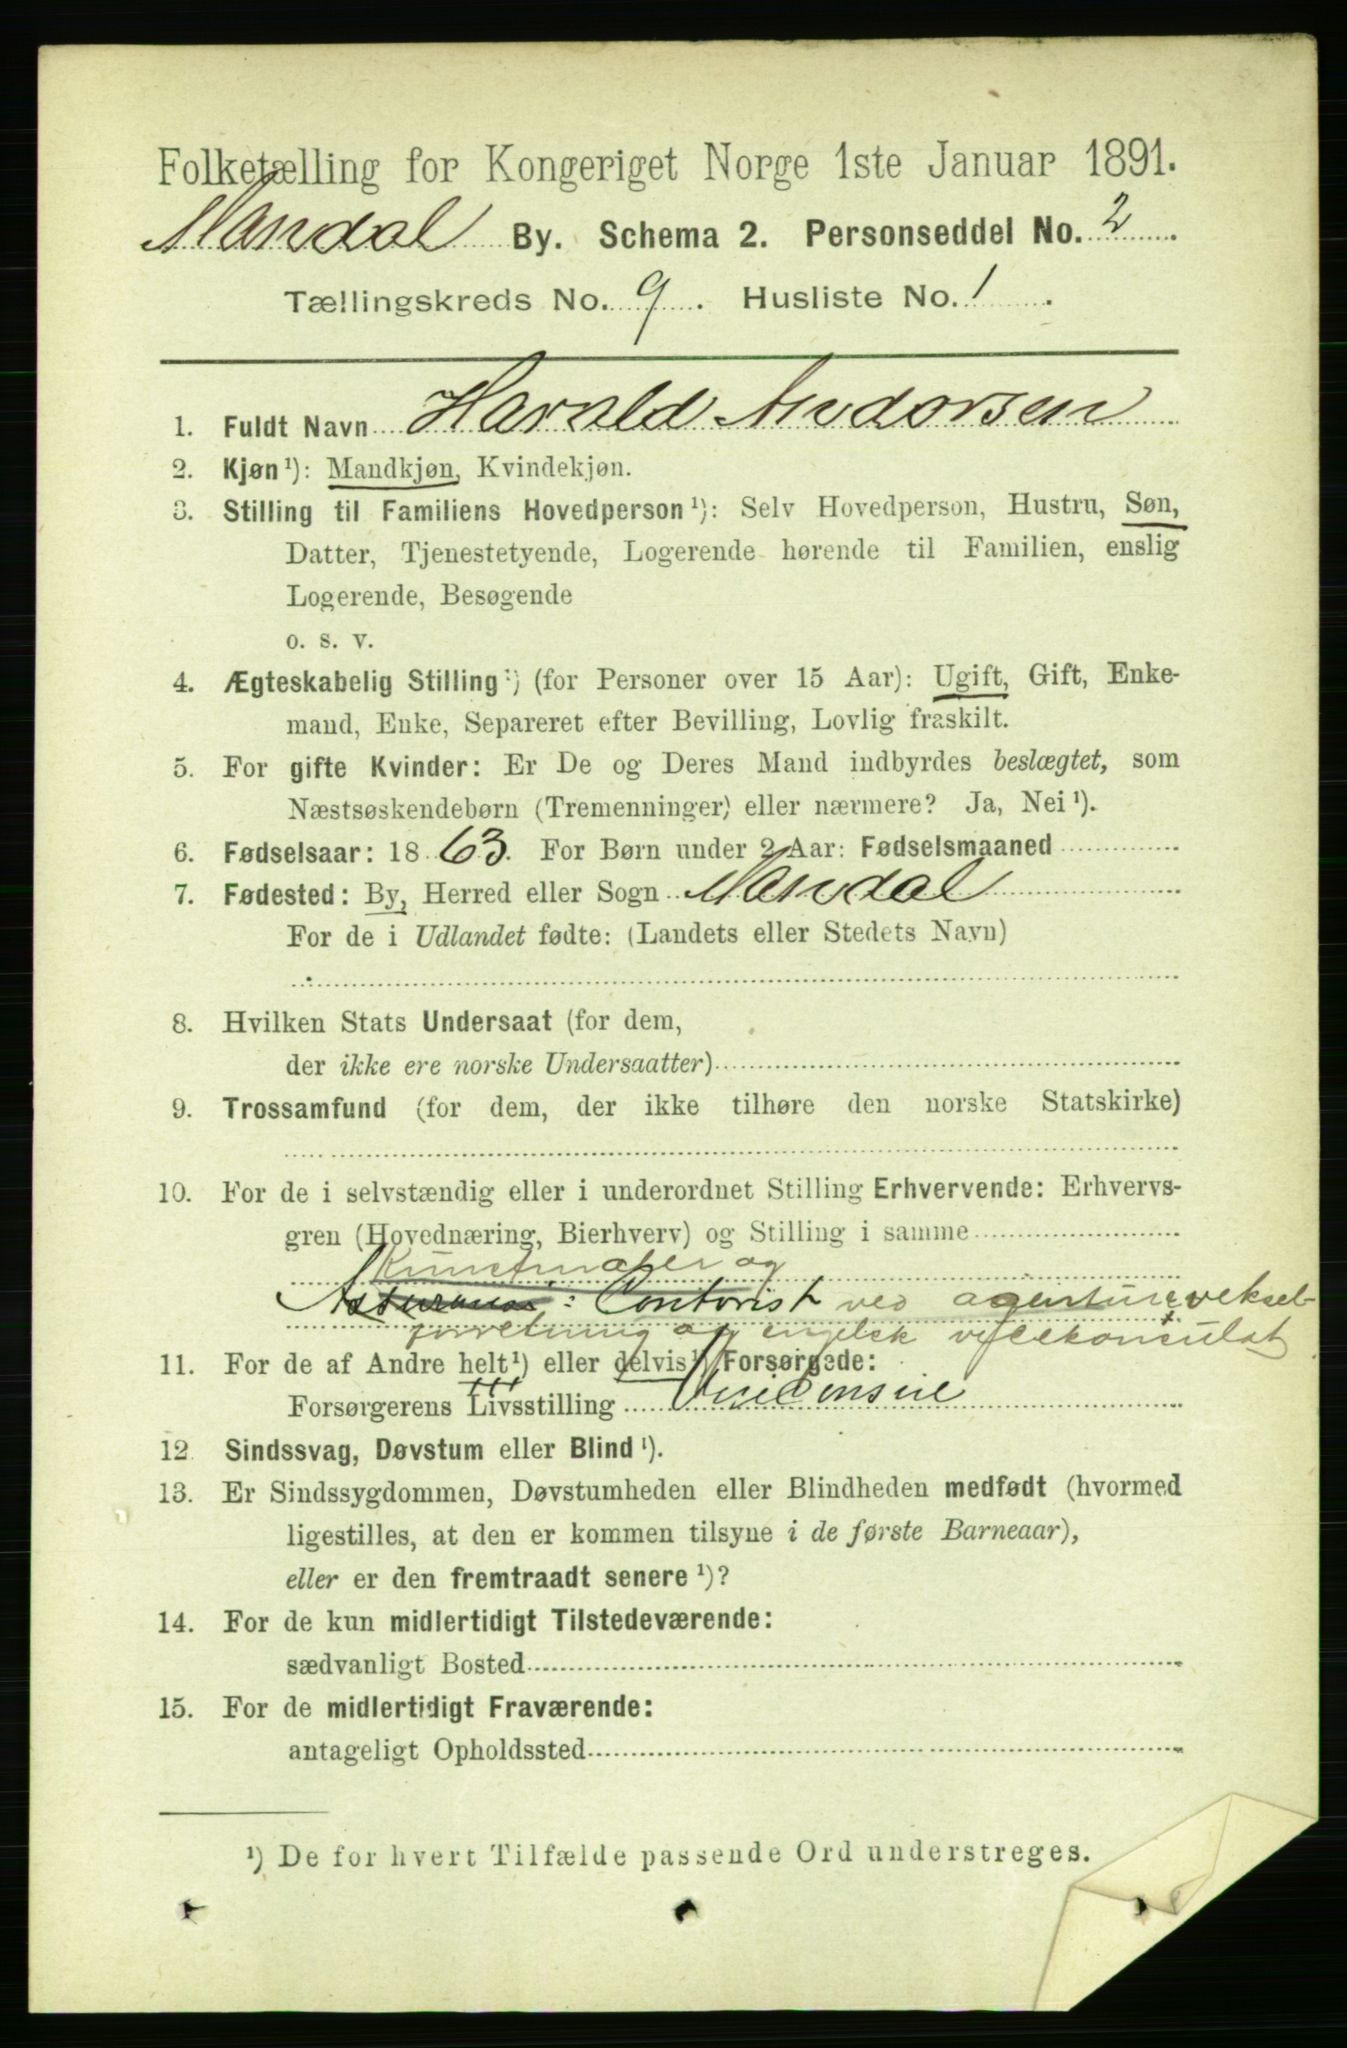 Folketælling for Kongeriget Norge 1ste Januar 1891.
Mandal By. Schema 2. Personseddel No. 2.
Tællingskreds No. 9. Husliste No. 1.
1. Fuldt Navn Harald Andorsen
2. Kjøn ¹): Mandkjøn, Kvindekjøn.
3. Stilling til Familiens Hovedperson ¹): Selv Hovedperson, Hustru, Søn,
Datter, Tjenestetyende, Logerende hørende til Familien, enslig
Logerende, Besøgende
o. s. v.
4. Ægteskabelig Stilling ¹) (for Personer over 15 Aar): Ugift, Gift, Enke-
mand, Enke, Separeret efter Bevilling, Lovlig fraskilt.
5. For gifte Kvinder: Er De og Deres Mand indbyrdes beslægtet, som
Næstsøskendebørn (Tremenninger) eller nærmere? Ja, Nei ¹).
6. Fødselsaar: 1863. For Børn under 2 Aar: Fødselsmaaned
7. Fødested: By, Herred eller Sogn Mandal
For de i Udlandet fødte: (Landets eller Stedets Navn)
8. Hvilken Stats Undersaat (for dem,
der ikke ere norske Undersaatter)
9. Trossamfund (for dem, der ikke tilhøre den norske Statskirke)
10. For de i selvstændig eller i underordnet Stilling Erhvervende: Erhvervs-
gren (Hovednæring, Bierhverv) og Stilling i samme
Kunstmaler og
: Contorist ved agentur, veksel-
forretning og engelsk vicekonsulat
11. For de af Andre helt ¹) eller delvis ¹) Forsørgede:
Forsørgerens Livsstilling Viceconsul
12. Sindssvag, Døvstum eller Blind ¹).
13. Er Sindssygdommen, Døvstumheden eller Blindheden medfødt (hvormed
ligestilles, at den er kommen tilsyne i de første Barneaar),
eller er den fremtraadt senere ¹)?
14. For de kun midlertidigt Tilstedeværende:
sædvanligt Bosted
15. For de midlertidigt Fraværende:
antageligt Opholdssted
¹) De for hvert Tilfælde passende Ord understreges.